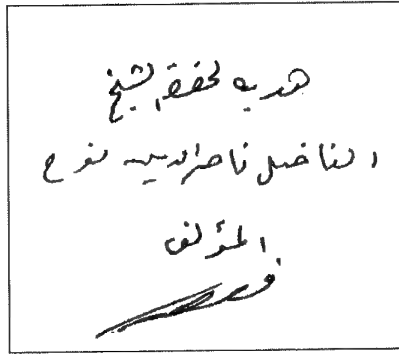 هديه لحضرة الشيخ
الفاضل ناصر الدين نوح
المؤلف